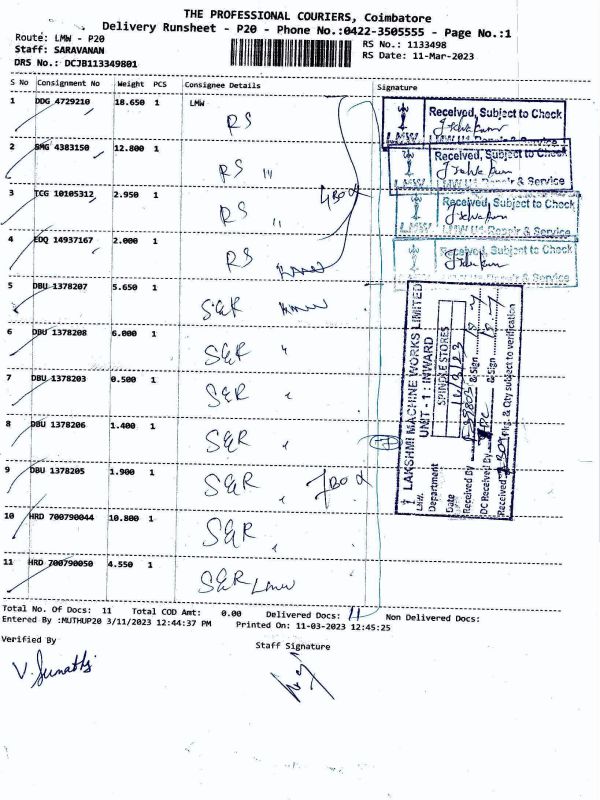 THE PROFESSIONAL COURIERS, Coimbatore
Delivery Runsheet - P20 - Phone No.:0422-3505555 - Page No.:1
Route: LMW - P20
RS No.: 1133498
Staff: SARAVANAN
RS Date: 11-Mar-2023
DRS No.: DCJB113349801
S No Consignment No Weight PCS Consignee Details Signature
1 DDG 4729210 18.650 1 LMW
RS
Received, Subject to Check
LMW U1 Repair & Service
2 BMG 4383150 12.800 1
RS "
Received, Subject to Check
LMW U1 Repair & Service
3 TCG 10105312 2.950 1
RS "
4 Box
Received, Subject to Check
LMW U1 Repair & Service
4 EDQ 14937167 2.000 1
RS
Received, Subject to Check
LMW U1 Repair & Service
5 DBU 1378207 5.650 1
S&R
6 DBU 1378208 6.000 1
S&R "
7 DBU 1378203 0.500 1
S&R "
8 DBU 1378206 1.400 1
S&R "
9 DBU 1378205 1.900 1
S&R " 7 Box
10 HRD 700790044 10.800 1
S&R "
11 HRD 700790050 4.550 1
S&R LMW
LMW. LAKSHMI MACHINE WORKS LIMITED
UNIT - 1 : INWARD
Department SPINDLE STORES
Date
Received By & Sign
DC Received By & Sign
Received Pkgs. & Qty subject to verification
Total No. Of Docs: 11 Total COD Amt: 0.00 Delivered Docs: 11 Non Delivered Docs:
Entered By :MUTHUP20 3/11/2023 12:44:37 PM Printed On: 11-03-2023 12:45:25
Verified By
Staff Signature